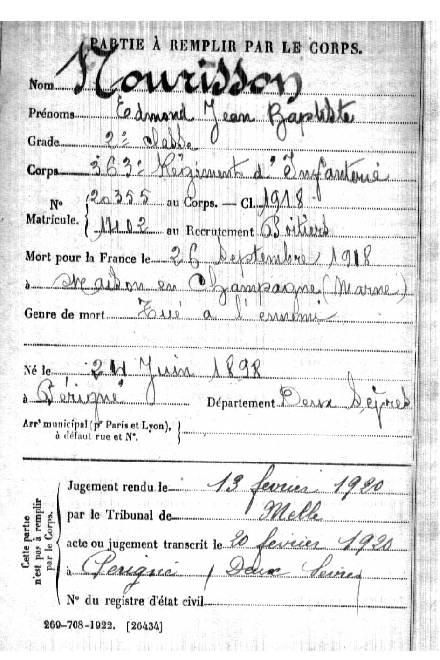 PARTIE À REMPLIR PAR LE CORPS.
Nom Nourisson
Prénoms Edmond Jean Baptiste
Grade 2e classe
Corps 363e Régiment d'Infanterie
N° Matricule. { 20355 au Corps. — Cl. 1918
1402 au Recrutement Poitiers
Mort pour la France le 26 Septembre 1918
à en Champagne (Marne)
Genre de mort Tué a l'ennemi
Né le 24 Juin 1898
à Périgné Département Deux Sèvres
Arrt municipal (pr Paris et Lyon), à défaut rue et N°. }
Cette partie n'est pas à remplir par le Corps.
Jugement rendu le 13 fevrier 1920
par le Tribunal de Melle
acte ou jugement transcrit le 20 fevrier 1920
à Perigné, Deux Sevres
N° du registre d'état civil
269-708-1922. [26434]